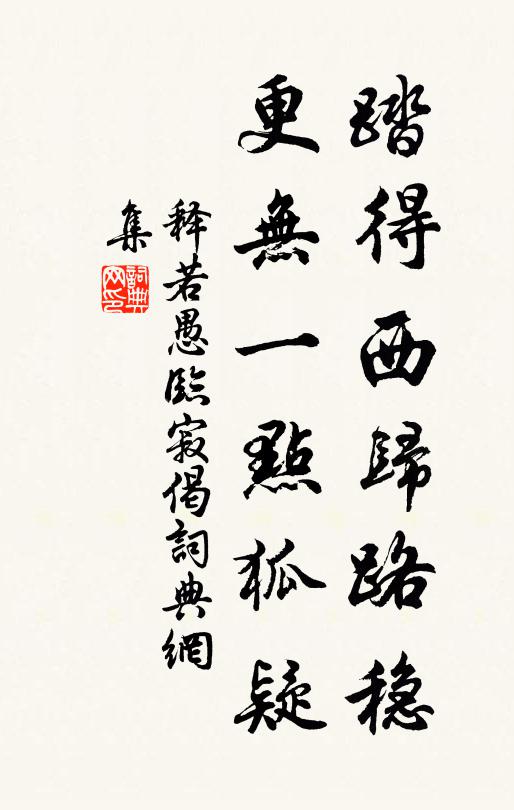 踏得西歸路穏
更無一點狐疑
释若愚臨寂偈詞典網
集
詞典網印